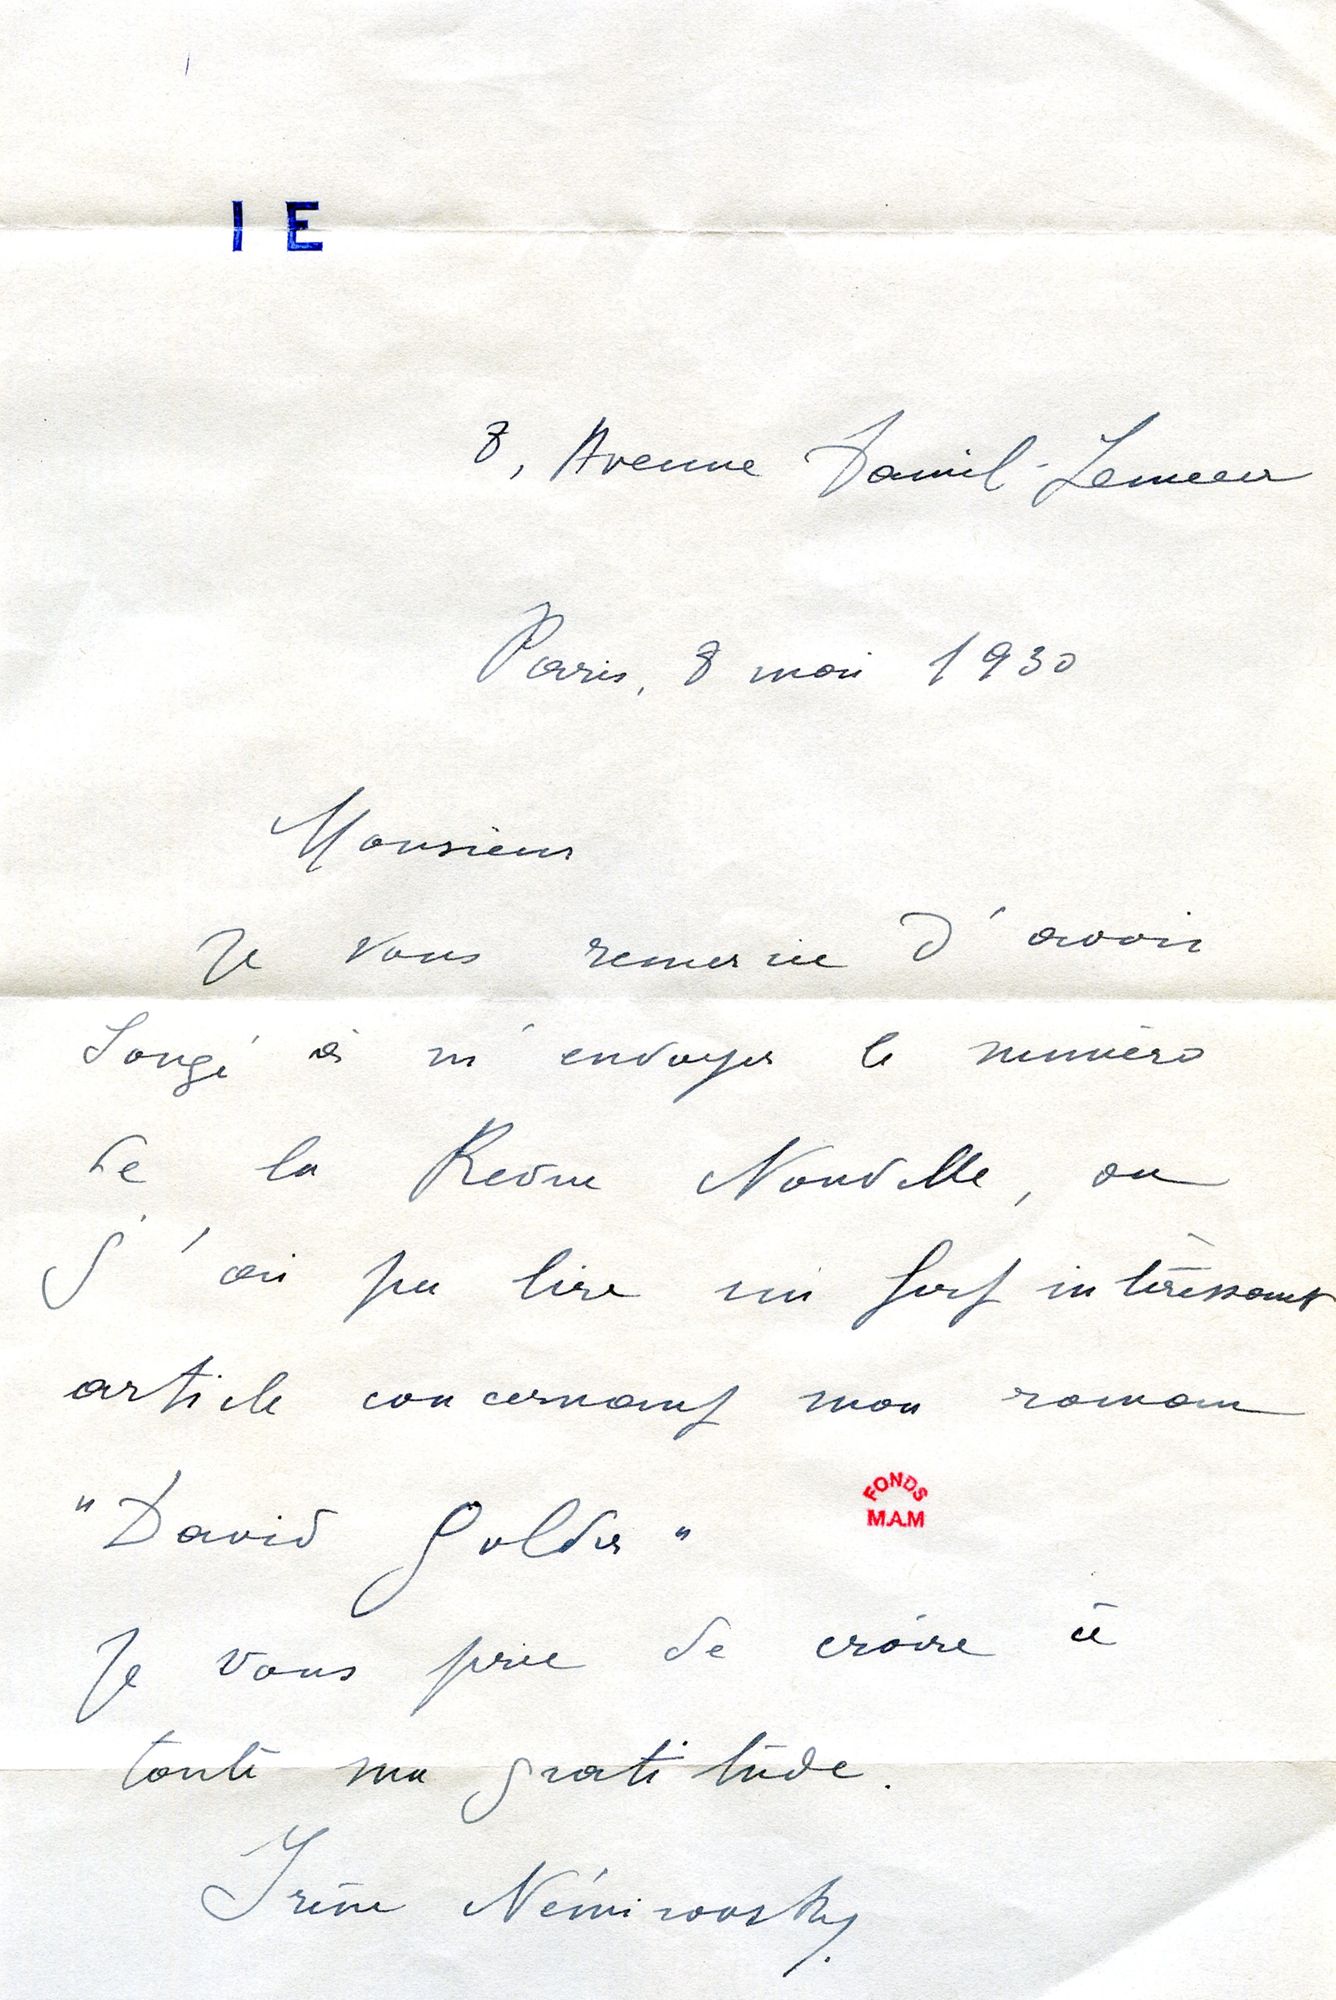 I E
8, Avenue Daniel-Lesueur
Paris, 8 mai 1930
Monsieur
Je vous remercie d'avoir
songé à m'envoyer le numéro
de la Revue Nouvelle, où
j'ai pu lire un fort intéressant
article concernant mon roman
"David Golder"
FONDS
M.A.M
Je vous prie de croire à
toute ma gratitude.
Irène Némirovsky.